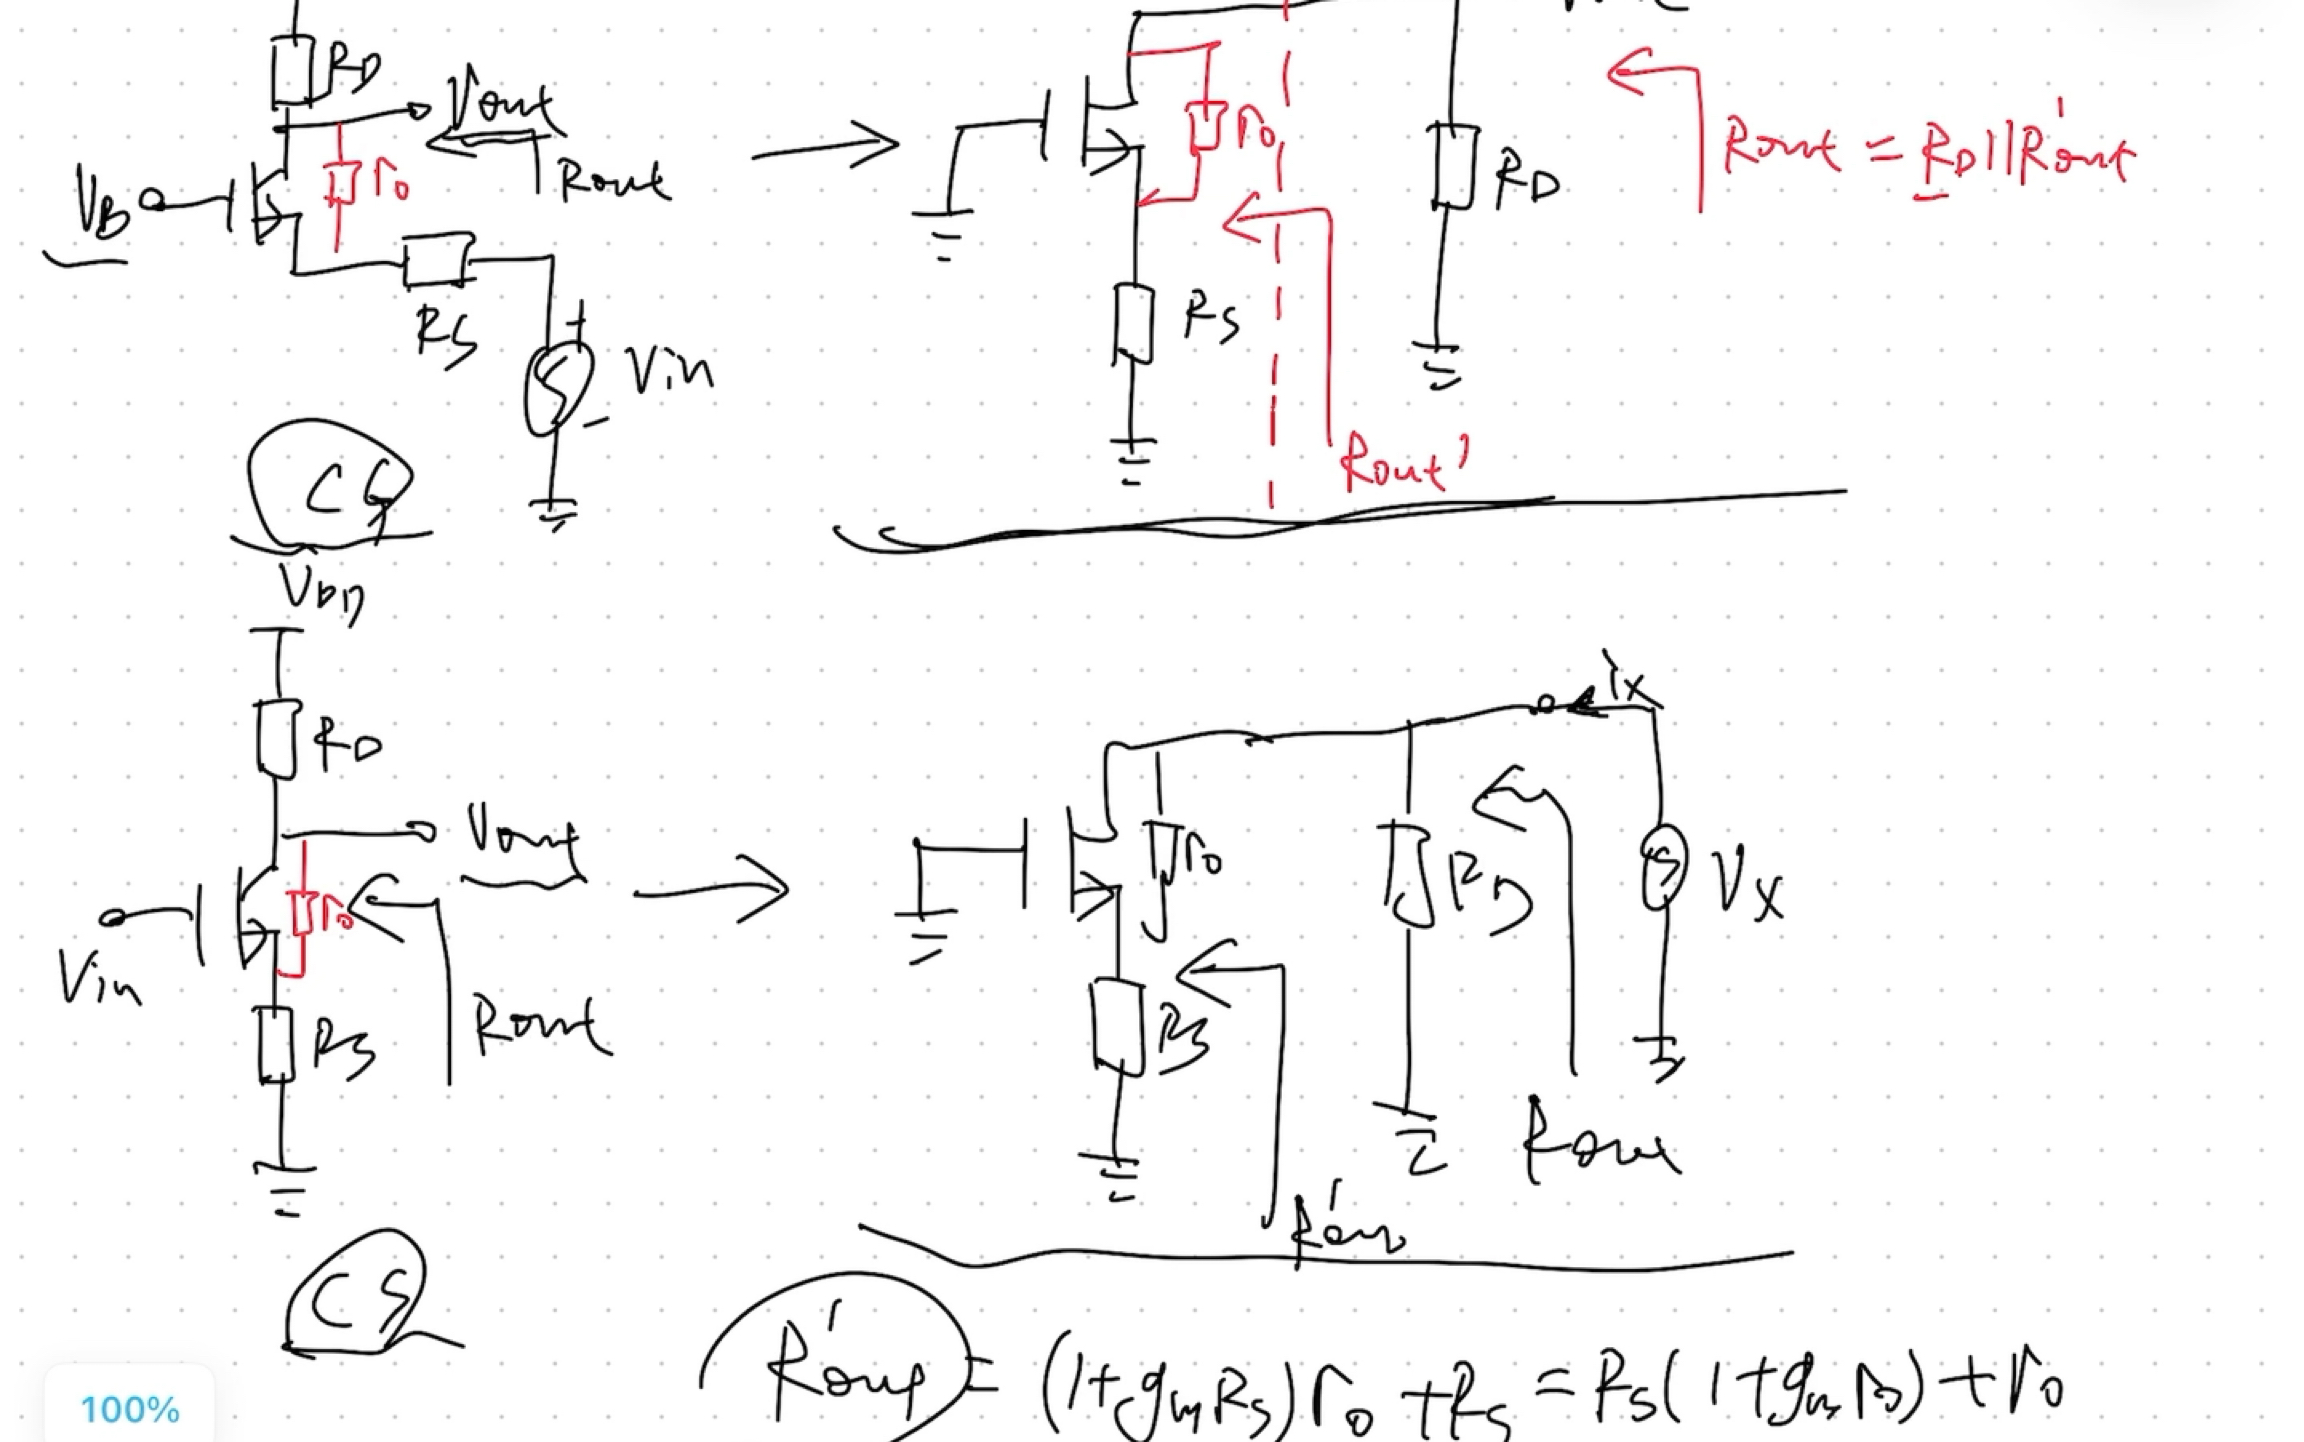 RD
Vout
ro
Rout
VB
RS
Vin
CG
ro
RD
Rout = RD||R'out
RS
Rout'
VDD
RD
Vout
ro
Vin
Rout
RS
CS
ix
ro
RD
VX
RS
Rout
R'out
R'out = (1+gmRS)ro + RS = RS(1+gmro)+ro
100%